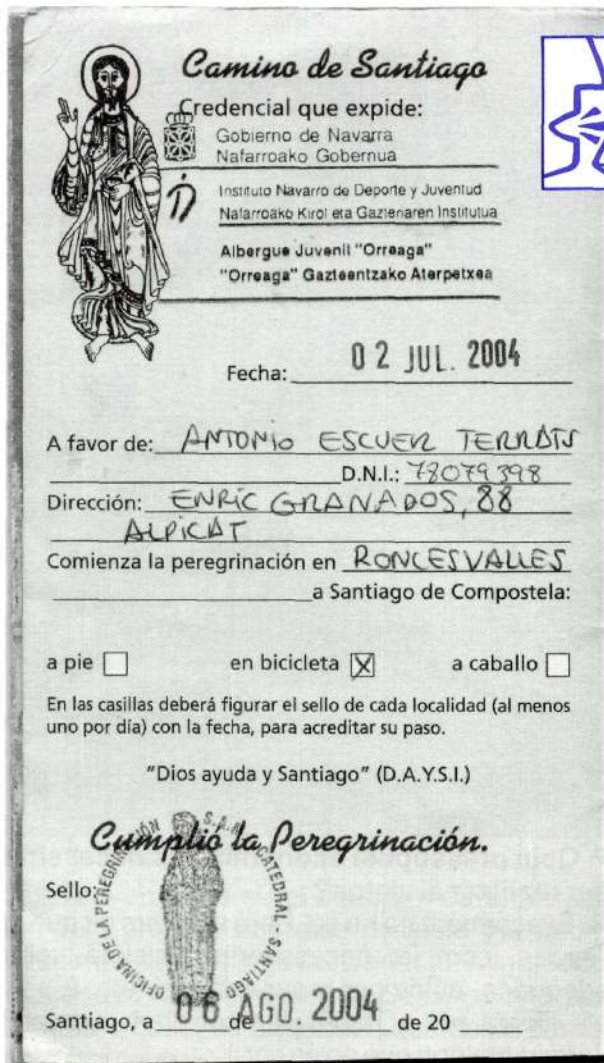 Camino de Santiago
Credencial que expide:
Gobierno de Navarra
Nafarroako Gobernua
Instituto Navarro de Deporte y Juventud
Nafarroako Kirol eta Gazteriaren Institutua
Albergue Juvenil "Orreaga"
"Orreaga" Gazteentzako Aterpetxea
Fecha: 02 JUL. 2004
A favor de: ANTONIO ESCUER TERRATS
D.N.I.: 78079398
Dirección: ENRIC GRANADOS, 88
ALPICAT
Comienza la peregrinación en RONCESVALLES
a Santiago de Compostela:
a pie en bicicleta X a caballo
En las casillas deberá figurar el sello de cada localidad (al menos
uno por día) con la fecha, para acreditar su paso.
"Dios ayuda y Santiago" (D.A.Y.S.I.)
Cumplió la Peregrinación.
Sello:
OFICINA DE LA PEREGRINACIÓN S.A.M. CATEDRAL - SANTIAGO
Santiago, a 06 de AGO. 2004 de 20